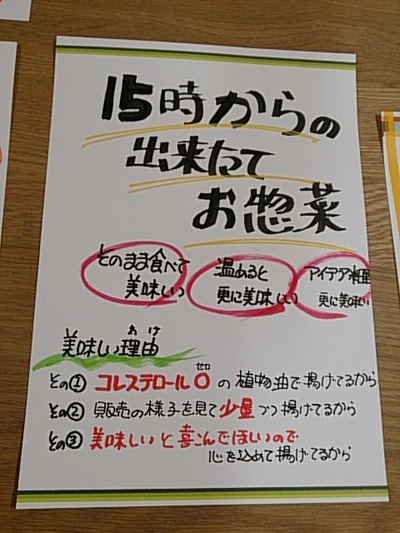 15時からの
出来たて
お惣菜
そのまま食べて
美味しい
温めると
更に美味しい
アイデア料理
更に美味しい
わけ
美味しい理由
ゼロ
その① コレステロール0の植物油で揚げてるから
その② 販売の様子を見て少量づつ揚げてるから
その③ 美味しいと喜こんでほしいので
心を込めて揚げてるから